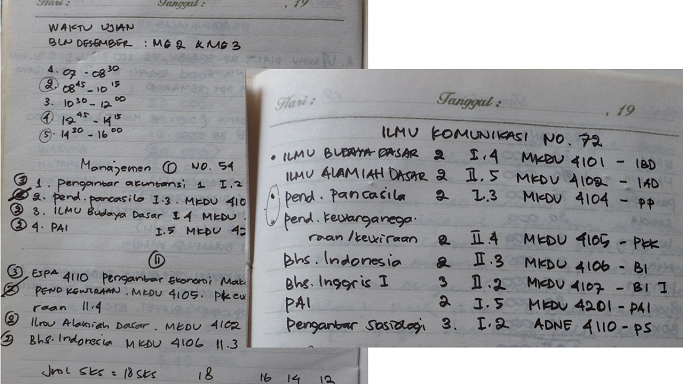 Hari : Tanggal : , 19
WAKTU UJIAN
BLN DESEMBER : MG 2 & MG 3
1. 07 - 08³⁰
2. 08⁴⁵ - 10¹⁵
3. 10³⁰ - 12⁰⁰
4. 12⁴⁵ - 14¹⁵
5. 14³⁰ - 16⁰⁰
Manajemen I NO. 54
1. pengantar akuntansi 1 I.2
2. pend. pancasila I.3. MKDU 410
3. ILMU Budaya Dasar I.4 MKDU
4. PAI I.5 MKDU 42
II
ESPA 4110 Pengantar Ekonomi Mak
PEND KEWIRAAN. MKDU 4105.
raan II.4
Ilmu Alamiah Dasar. MKDU 4102
Bhs. Indonesia MKDU 4106 II.3
Jml SKS = 18 SKS 18 16 14 12
Hari : Tanggal : , 19
ILMU KOMUNIKASI NO. 72
• ILMU BUDAYA DASAR 2 I.4 MKDU 4101 - IBD
ILMU ALAMIAH DASAR 2 II.5 MKDU 4102 - IAD
pend. pancasila 2 I.3 MKDU 4104 - PP
pend. kewarganega-
raan/kewiraan 2 II.4 MKDU 4105 - PKK
Bhs. Indonesia 2 II.3 MKDU 4106 - BI
Bhs. Inggris I 3 II.2 MKDU 4107 - BI I
PAI 2 I.5 MKDU 4201 - PAI
Pengantar Sosiologi 3. I.2 ADNE 4110 - PS